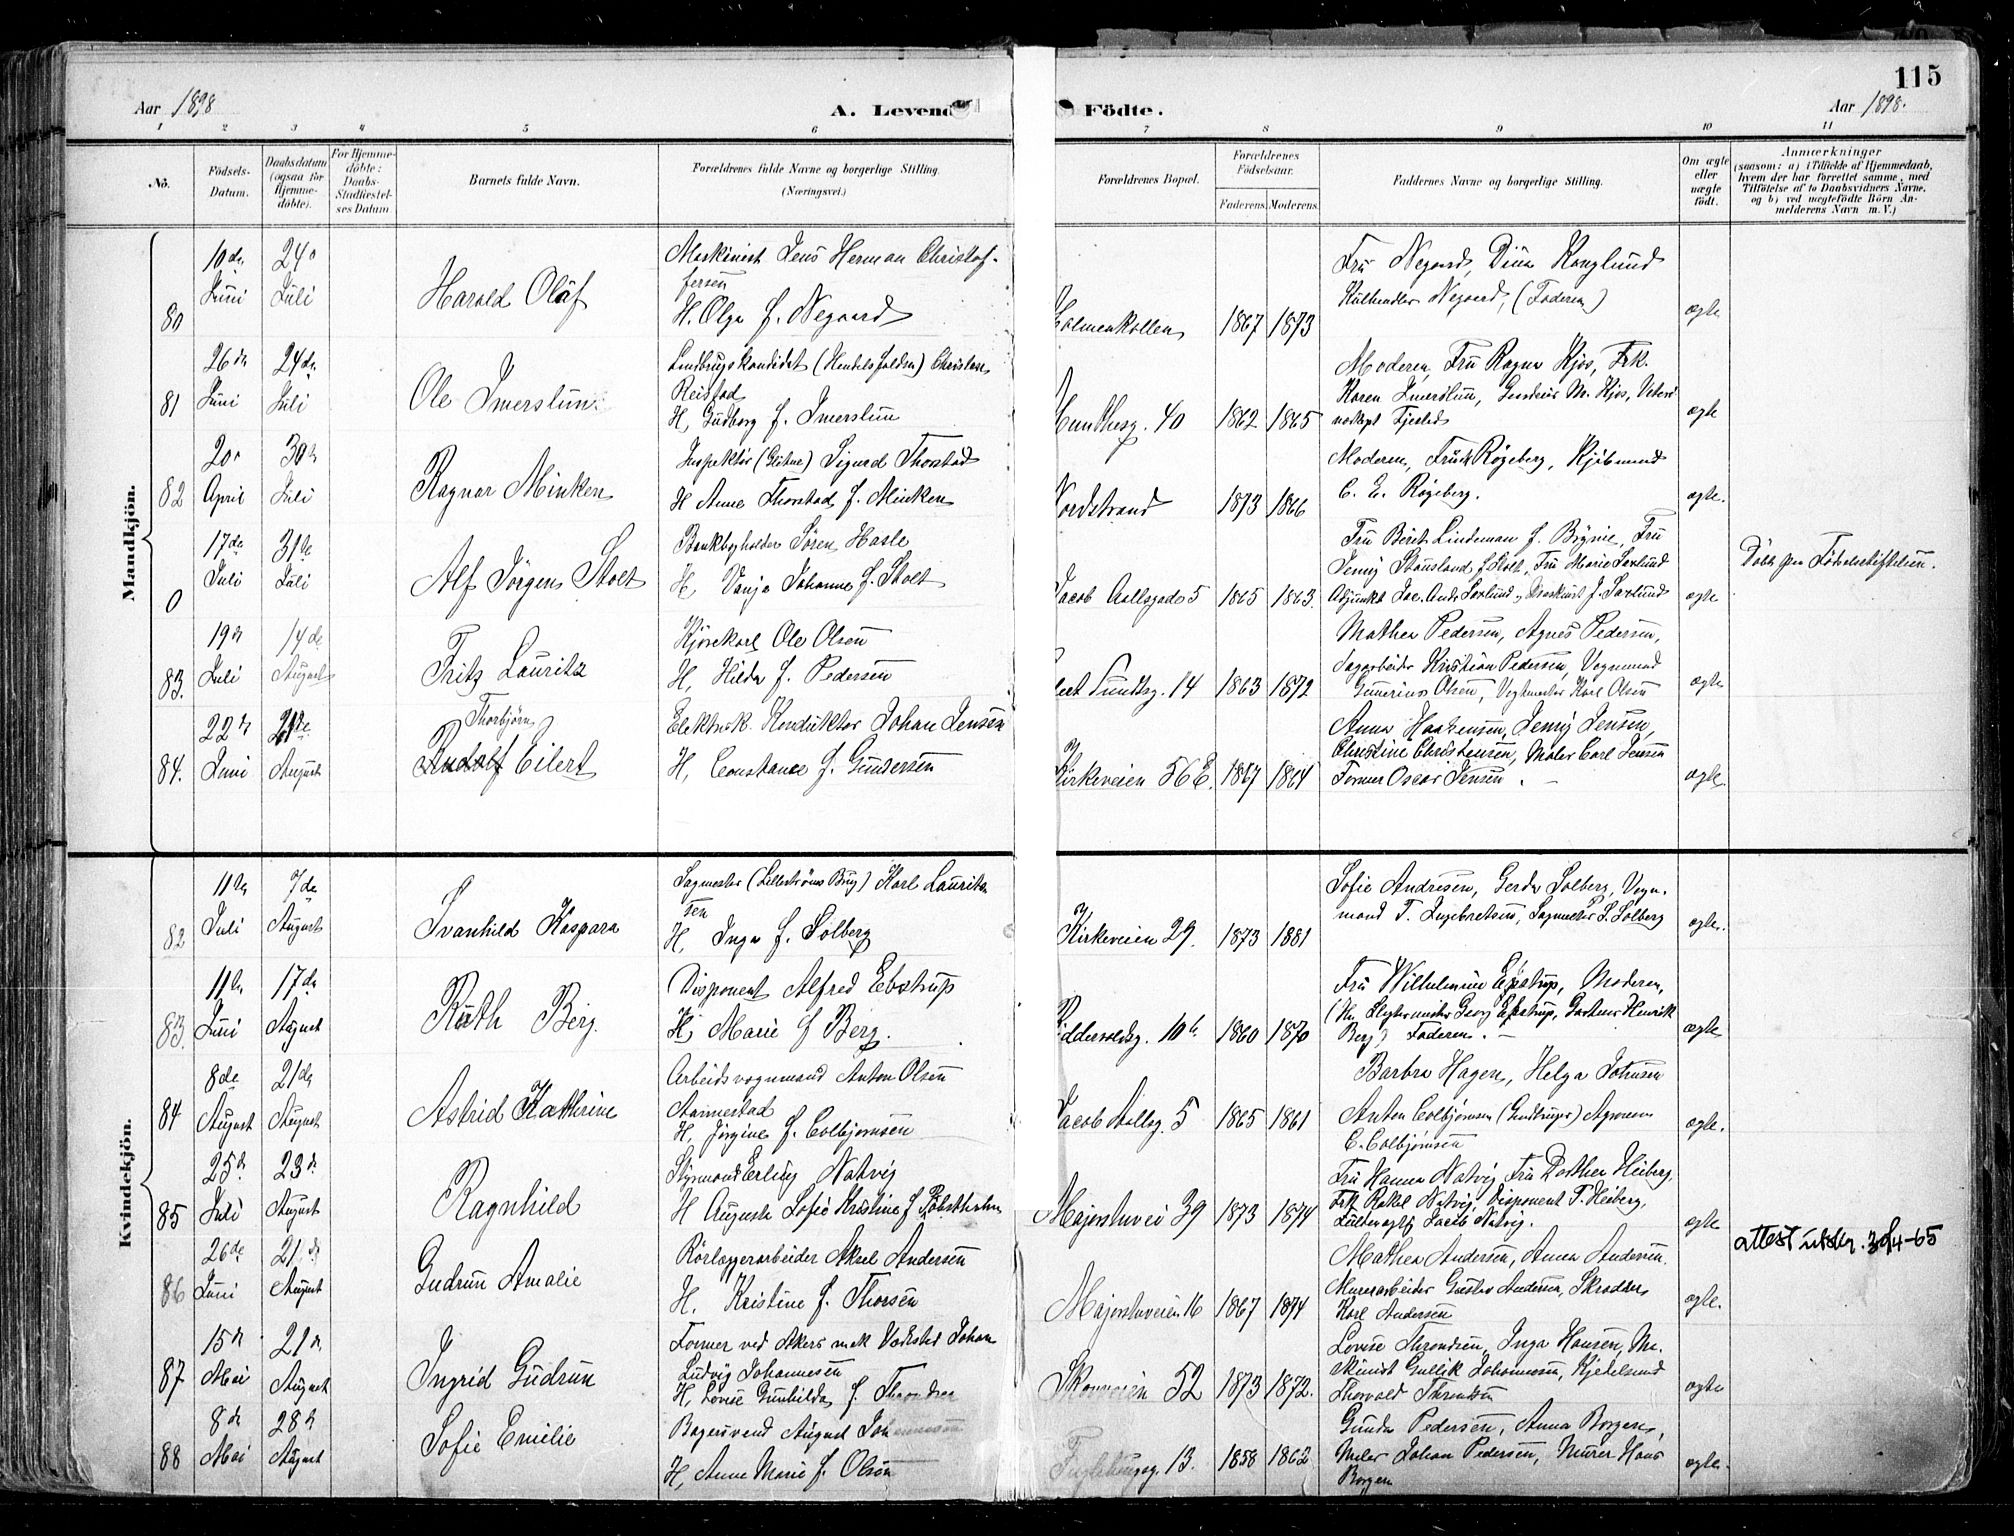 115
Aar 1898
A. Levende Födte.
Aar 1898.
1 2 3 4 5 6 7 8 9 10 11
No.
Födsels-Datum.
Daabsdatum (ogsaa for Hjemme-döbte).
For Hjemme-döbte: Daabs-Stadfæstel-ses Datum
Barnets fulde Navn.
Forældrenes fulde Navne og borgerlige Stilling. (Næringsvei.)
Forældrenes Bopæl.
Forældrenes Födselsaar.
Faderens. Moderens.
Faddernes Navne og borgerlige Stilling.
Om ægte eller uægte födt.
Anmærkninger
(saasom: a) i Tilfælde af Hjemmedaab,
hvem der har forrettet samme, med
Tilföielse af to Daabsvidners Navne,
og b) ved uægtefödte Börn An-
melderens Navn m. V.)
Mandkjön.
80
10de Juni
24o Juli
Harold Olaf
Maskinist Jens Herman Christof-
fersen
H. Olga f. Negaard
Holmenkollen
1867 1873
Fru Negaard, Dina Kanglund
Negaard, (Faderen)
ægte
81
26de Juni
24de Juli
Ole Imerslun
Landbrugskandidat Christian
Reistad
H. Gudborg f. Imerslun
Munthesg. 40
1862 1865
Moderen, Fru Ragna Kjos, Frk.
Karen Imerslun, M. Kjos,
ægte
82
20. April
30te Juli
Ragnar Minken
Inspektör (Gitne) Sigurd Thorstad
H Anne Thorstad f. Minken
Nordstrand
1873 1866
Moderen, Fru Rögeberg, Kjöbmand
C. E. Rögeberg.
ægte.
0
17de Juli
31te Juli
Alf Jörgen Stolt
Bankbogholder Sören Hasle
H. Vanja Johanne f. Stolt
Jacob Aallsgade 5
1865 1863.
Fru Berit Lindeman f. Fru
Jenny Stousland f. Holt, Fru Marie Saxlund
Adjunkt Jac. Andr. Saxlund, J. Saxlund
ægte
Döbt paa Födselsstiftelsen.
83.
19de Juli
14de August
Fritz Lauritz
Kjörekarl Ole Olsen
H. Hilda f. Pedersen
Eilert Sundtsg. 14
1863 1872
Mathea Pedersen, Agnes Pedersen,
Sagarbeider Kristian Pedersen, Vognmand
Gunerius Olsen, Karl Olsen
ægte
84.
22de Juni
21de August
Thorbjörn
Rudolf Eilert
Elektrisk Konduktör Johan Jensen
H. Constance f. Gundersen
Kirkeveien 56 E.
1867 1864
Anna Haakensen, Jenny Jensen,
Christine Christensen, Maler Carl Jensen
Former Oscar Jensen. —
ægte
Kvindekjön.
82
11te Juli
7de August
Ivanhild Kaspara
Sagmester (Lilleströms Brug) Karl Laurit-
sen
H. Inga f. Solberg
Kirkeveien 29.
1873 1881
Sofie Andresen, Gerda Solberg, Vogn-
mand T. Ingebretsen, Sagmester S. Solberg
ægte.
83.
11te Juni
17de August
Ruth Berg.
Disponent Alfred Ebstrup
H. Marie f Berg.
Riddervoldsg. 10b
1860 1870
Fru Wilhelmine Ebstrup, Moderen,
Georg Ebstrup, Gartner Henrik
Berg) Faderen. —
ægte
84
8de August
21de August
Astrid Kathrine
Arbeidsvognmand Anton Olsen
Aannestad
H. Jörgine f. Colbjörnsen
Jacob Aallsg. 5
1865 1861
Barbra Hagen, Helga Johnsen
Anton Colbjörnsen (Gaardbruger) Agronom
C. Colbjörnsen
ægte.
85
25de Juli
23de August
Ragnhild
Styrmand Erling Natvig
H Augusta Sofie Kristine f
Majorstuvei 39
1873 1874
Fru Hanna Natvig, Fru Dorthea Heiberg,
Frk Rakel Natvig, Disponent T. Heiberg,
Jacob Natvig.
ægte
86
26de Juni
21.de August
Gudrun Amalie
Rörlæggerarbeider Aksel Andersen
H. Kristine f. Thorsen
Majorstuveien 16
1867 1874
Mathea Andersen, Anna Andersen.
Murerarbeider Gustav Andersen, Skrædder
Karl Andersen
ægte.
attest utstn. 3/4-65
87
15de Mai
21de August
Ingrid Gudrun
Former ved Akers mek Værksted Johan
Ludvig Johannesen
H. Lovise Gunhilda f. Throndsen
Skovveien 52
1873 1872.
Lovise Throndsen, Inga Hansen, Ma-
skinist Gullik Johannesen, Kjedelsmed
Thorvald Throndsen
ægte
88
8de Mai
28de August
Sofie Emilie
Bagersvend August Johannesen
H. Anne Marie f. Olsen
Fuglehaugg. 13.
1858 1862
Gunda Pedersen, Anna Borgen,
Maler Johan Pedersen, Murer Hans
Borgen
ægte.